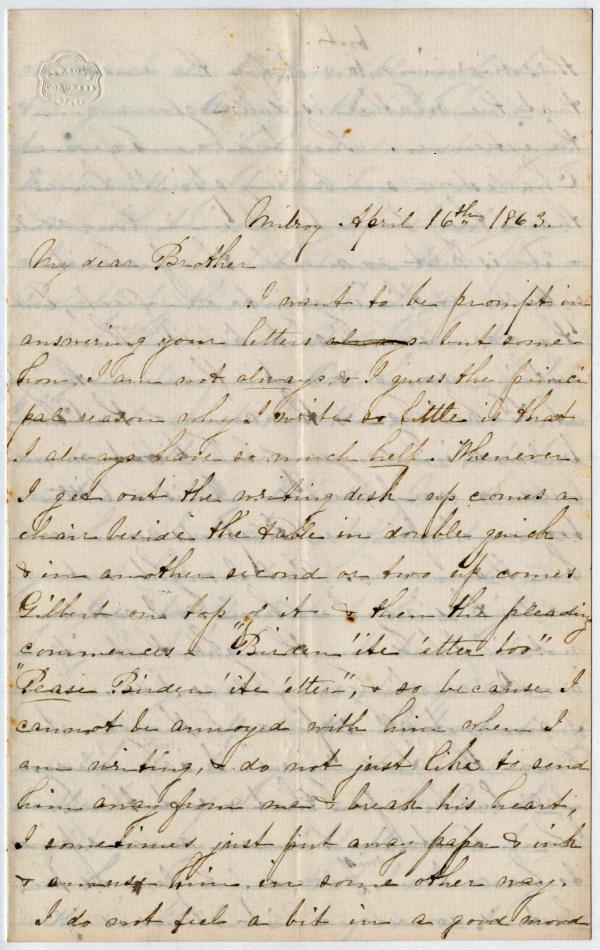 CONGRESS
Milroy April 16th 1863.
My dear Brother
I want to be prompt in
answering your letters always but some-
how I am not always & I guess the princi
pal reason why I write so little is that
I always have so much help. Whenever
I get out the writing desk - up comes a
chair beside the table in double quick
& in another second or two up comes
Gilbert on top of it & then the pleading
commences - "Birden 'ite 'etter too".
"Pease Birden 'ite 'etter", & so because I
cannot be annoyed with him when I
am writing, & do not just like to send
him away from me & break his heart,
I sometimes just put away paper & ink
& amuse him in some other way.
I do not feel a bit in a good mood